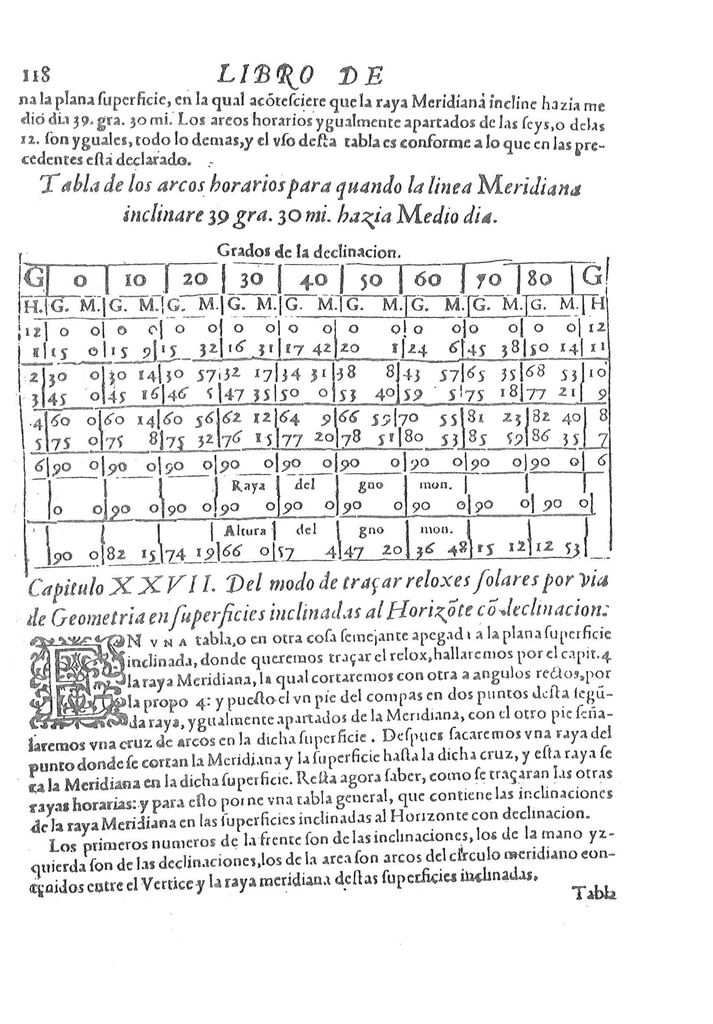 118 LIBRO DE
na la plana ſuperficie, en la qual acõteſciere que la raya Meridiana incline hazia me
dio dia 39. gra. 30 mi. Los arcos horarios ygualmente apartados de las ſeys, o delas
12. ſon yguales, todo lo demas, y el vſo deſta tabla es conforme a lo que en las pre-
cedentes eſtá declarado.
Tabla de los arcos horarios para quando la linea Meridiana
inclinare 39 gra. 30 mi. hazia Medio dia.
Grados de la declinacion.
G 0 10 20 30 40 50 60 70 80 G
H. G. M. G. M. G. M. G. M. G. M. G. M. G. M. G. M. G. M. H
12 0 0 0 0 0 0 0 0 0 0 0 0 0 0 0 0 0 0 12
1 15 0 15 9 15 32 16 31 17 42 20 1 24 6 45 38 50 14 11
2 30 0 30 14 30 57 32 17 34 31 38 8 43 57 65 35 68 53 10
3 45 0 45 16 46 5 47 35 50 0 53 40 59 5 75 18 77 21 9
4 60 0 60 14 60 56 62 12 64 9 66 59 70 55 81 23 82 40 8
5 75 0 75 8 75 32 76 15 77 20 78 51 80 53 85 59 86 35 7
6 90 0 90 0 90 0 90 0 90 0 90 0 90 0 90 0 90 0 6
Raya del gno mon.
0 0 90 0 90 0 90 0 90 0 90 0 90 0 90 0 90 0
Altura del gno mon.
90 0 82 15 74 19 66 0 57 4 47 20 36 48 15 12 12 53
Capitulo XXVII. Del modo de traçar reloxes ſolares por via
de Geometria en ſuperficies inclinadas al Horizõte cõ declinacion:
EN VNA tabla, o en otra coſa ſemejante apegada a la plana ſuperficie
inclinada, donde queremos traçar el relox, hallaremos por el capit. 4
la raya Meridiana, la qual cortaremos con otra a angulos rectos, por
la propo 4: y pueſto el vn pie del compas en dos puntos deſta ſegũ-
da raya, ygualmente apartados de la Meridiana, con el otro pie ſeña-
laremos vna cruz de arcos en la dicha ſuperficie. Deſpues ſacaremos vna raya del
punto donde ſe cortan la Meridiana y la ſuperficie haſta la dicha cruz, y eſta raya ſe
ra la Meridiana en la dicha ſuperficie. Reſta agora ſaber, como ſe traçaran las otras
rayas horarias: y para eſto porne vna tabla general, que contiene las inclinaciones
de la raya Meridiana en las ſuperficies inclinadas al Horizonte con declinacion.
Los primeros numeros de la frente ſon de las inclinaciones, los de la mano yz-
quierda ſon de las declinaciones, los de la area ſon arcos del circulo meridiano con-
tenidos entre el Vertice y la raya meridiana deſtas ſuperficies inclinadas.
Tabla